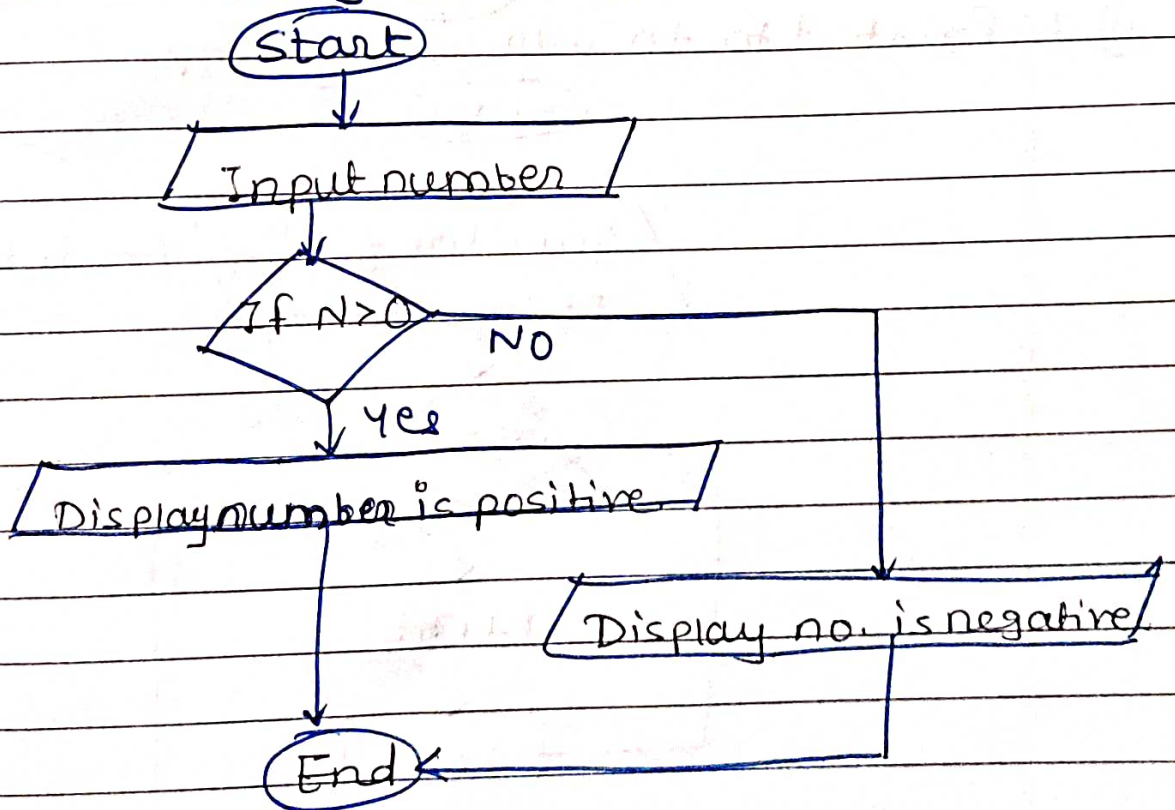 Start
Input number
If N>0
NO
Yes
Display number is positive
Display no. is negative
End